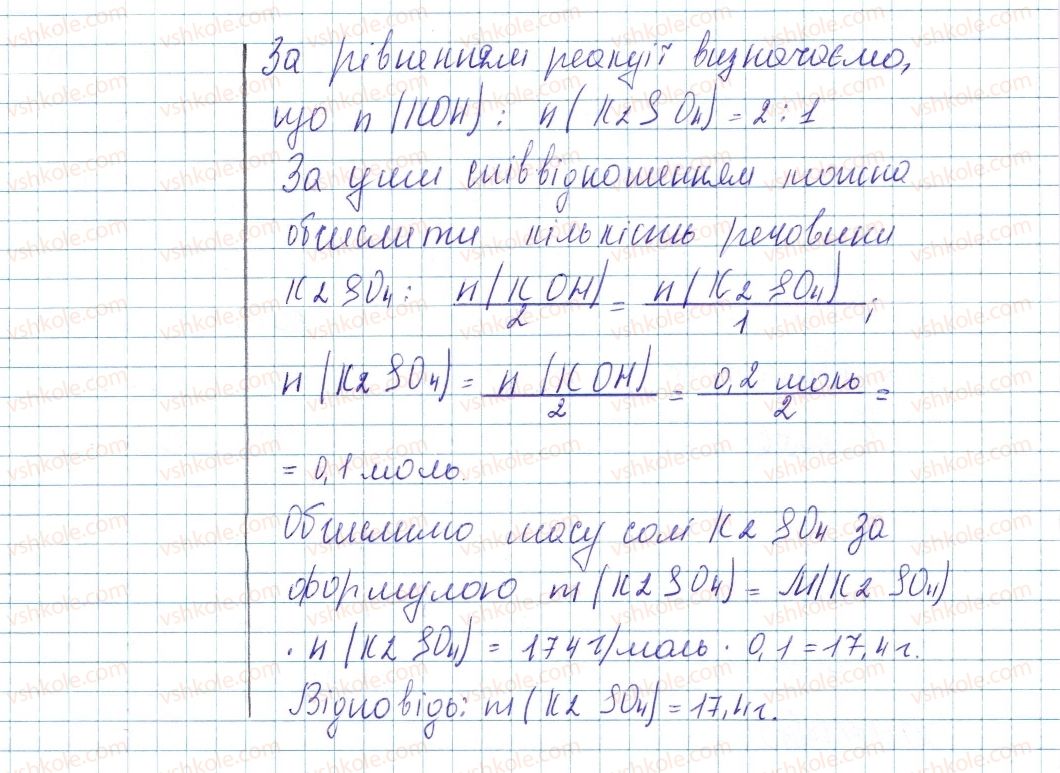 За рівнянням реакції визначаємо,
що n (KOH) : n (K2SO4) = 2 : 1
За цим співвідношенням можна
обчислити кількість речовини
K2SO4: n(KOH)/2 = n(K2SO4)/1;
n (K2SO4) = n (KOH)/2 = 0,2 моль/2 =
= 0,1 моль.
Обчислимо масу солі K2SO4 за
формулою m (K2SO4) = M(K2SO4)
· n (K2SO4) = 174 г/моль · 0,1 = 17,4 г.
Відповідь: m (K2SO4) = 17,4 г.